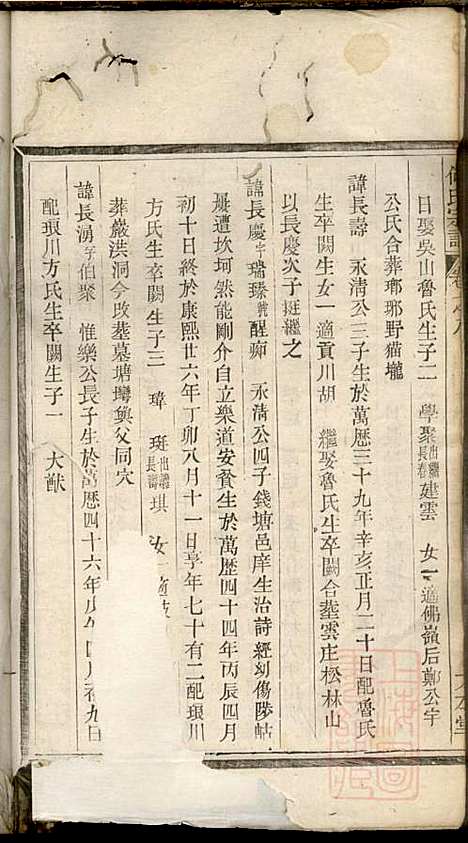 日娶吳山魯氏生子二 學聚出繼長春建雲 女一適佛嶺后鄭公宇
公氏合葬瑯琊野猫壠
諱長壽 永清公三子生於萬歷三十九年辛亥正月二十日配魯氏
生卒闕生女一適貢川胡 繼娶魯氏生卒闕合葬雲庄松林山
以長慶次子挺繼之
諱長慶字瑞臻號醒痴 永清公四子錢塘邑庠生治詩經幼傷陟帖
屢遭坎坷然能剛介自立樂道安貧生於萬歷四十四年丙辰四月
初十日終於康熙廿六年丁卯八月十一日享年七十有二配琅川
方氏生卒闕生子三 瑋 珽出繼長壽 琪 女一適
葬巖洪洞今改葬墓塘灣與父同穴
諱長湧字伯聚 惟樂公長子生於萬歷四十六年戊午四月初九日
配琅川方氏生卒闕生子一 大猷